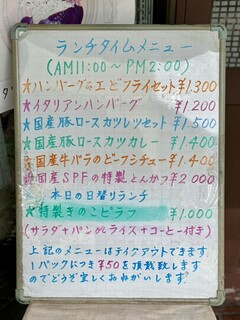 ランチタイムメニュー
(AM11:00～PM2:00)
★ハンバーグ&エビフライセット¥1.300
★イタリアンハンバーグ ¥1.200
★国産豚ロースカツレツセット¥1.500
★国産豚ロースカツカレー ¥1.400
★国産牛バラのビーフシチュー¥1.400
★国産SPFの特製とんかつ¥2000
本日の日替りランチ
★特製きのこピラフ ¥1.000
(サラダ+パンorライス+コーヒー付き)
上記のメニューはテイクアウトできます
1パックにつき¥50を頂戴致します
のでどうぞ宜しくおねがいします。